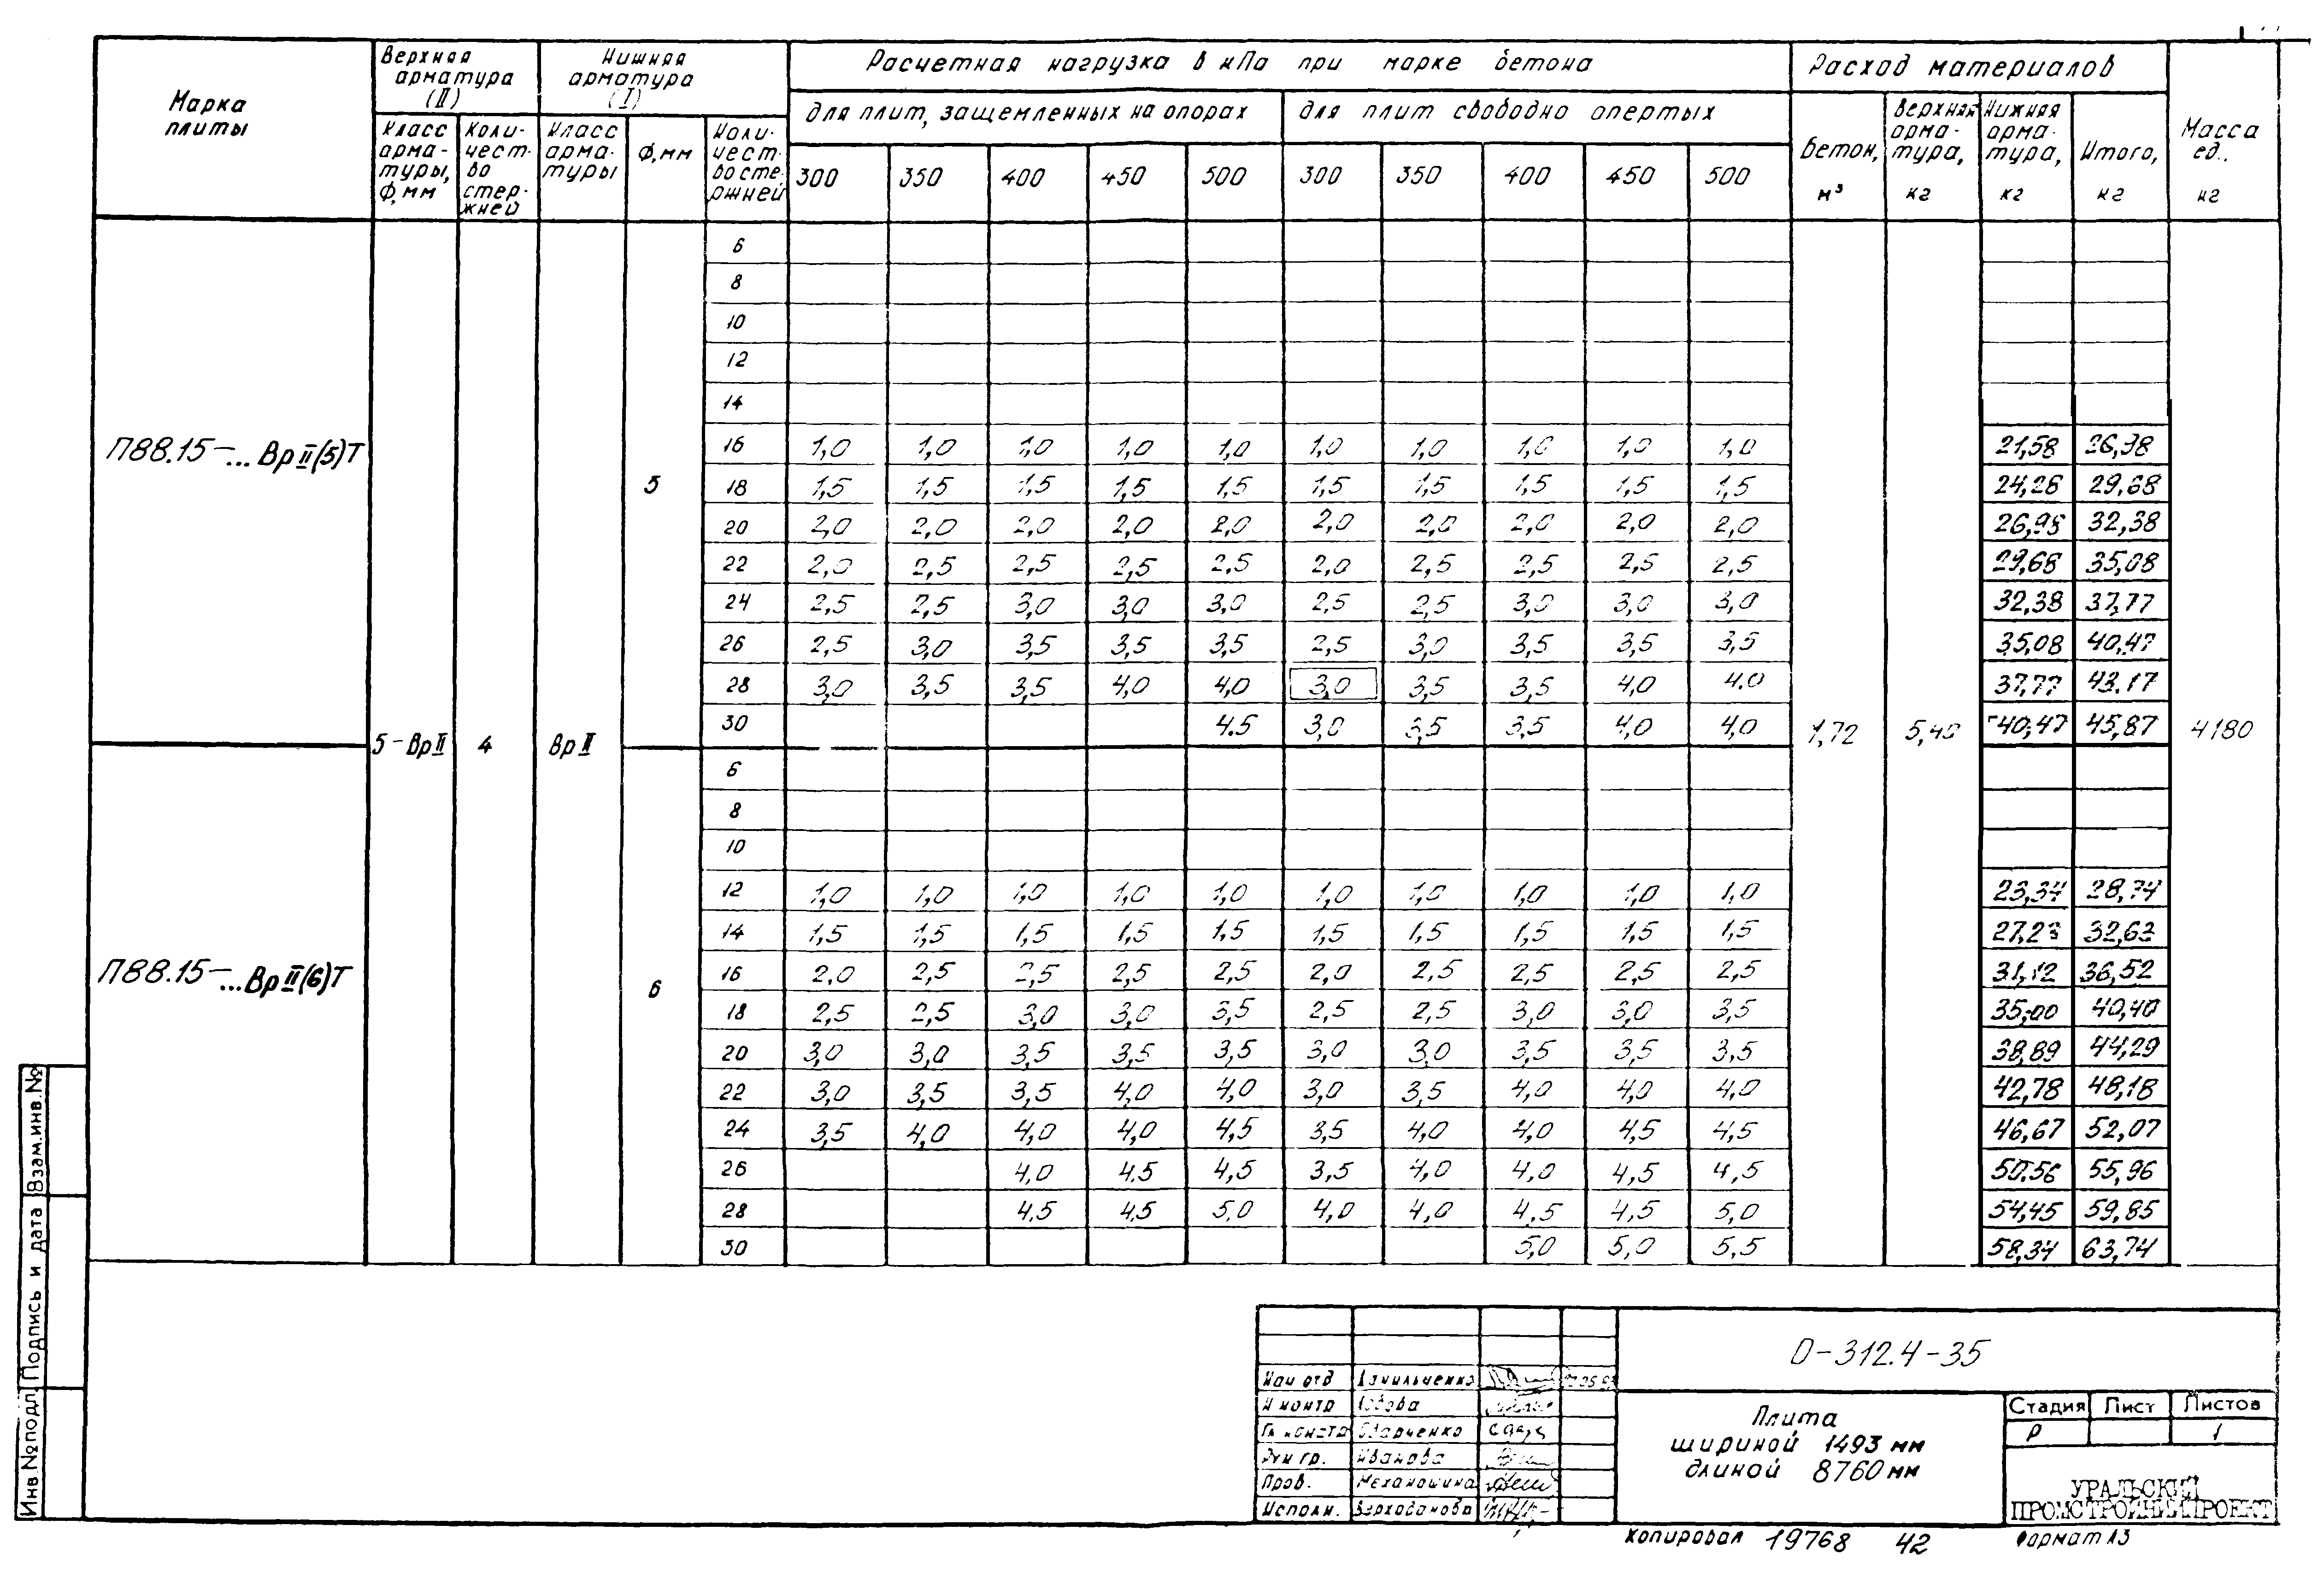 Марка плиты
Верхняя арматура (II)
Класс арматуры, Ф, мм
Количество стержней
Нижняя арматура (I)
Класс арматуры
Ф, мм
Количество стержней
Расчетная нагрузка в кПа при марке бетона
для плит, защемленных на опорах
для плит свободно опертых
300 350 400 450 500 300 350 400 450 500
Расход материалов
Бетон, м³
Верхняя арматура, кг
Нижняя арматура, кг
Итого, кг
Масса ед., кг
6
8
10
12
14
П88.15-...ВрII(5)Т
5
16 1,0 1,0 1,0 1,0 1,0 1,0 1,0 1,0 1,0 1,0 21,58
18 1,5 1,5 1,5 1,5 1,5 1,5 1,5 1,5 1,5 1,5 24,28 29,68
20 2,0 2,0 2,0 2,0 2,0 2,0 2,0 2,0 2,0 2,0 26,98 32,38
22 2,0 2,5 2,5 2,5 2,5 2,0 2,5 2,5 2,5 2,5 29,68 35,08
24 2,5 2,5 3,0 3,0 3,0 2,5 2,5 3,0 3,0 3,0 32,38 37,77
26 2,5 3,0 3,5 3,5 3,5 2,5 3,0 3,5 3,5 3,5 35,08 40,47
28 3,0 3,5 3,5 4,0 4,0 3,0 3,5 3,5 4,0 4,0 37,77 43,17
30 4,5 3,0 3,5 3,5 4,0 4,0 40,47 45,87
5-ВрII 4 ВрII 1,72 5,40 4180
6
8
10
12 1,0 1,0 1,0 1,0 1,0 1,0 1,0 1,0 1,0 1,0 23,34 28,74
14 1,5 1,5 1,5 1,5 1,5 1,5 1,5 1,5 1,5 1,5 27,23 32,63
П88.15-...ВрII(6)Т
6
16 2,0 2,5 2,5 2,5 2,5 2,0 2,5 2,5 2,5 2,5 31,12 36,52
18 2,5 2,5 3,0 3,0 3,5 2,5 2,5 3,0 3,0 3,5 35,00 40,40
20 3,0 3,0 3,5 3,5 3,5 3,0 3,0 3,5 3,5 3,5 38,89 44,29
22 3,0 3,5 3,5 4,0 4,0 3,0 3,5 4,0 4,0 4,0 42,78 48,18
24 3,5 4,0 4,0 4,0 4,5 3,5 4,0 4,0 4,5 4,5 46,67 52,07
26 4,0 4,5 4,5 3,5 4,0 4,0 4,5 4,5 50,56 55,96
28 4,5 4,5 5,0 4,0 4,0 4,5 4,5 5,0 54,45 59,85
30 5,0 5,0 5,5 58,34 63,74
Взам.инв.№
Подпись и дата
Инв.№подл.
О-312.4-35
Нач отд Данильченко
Н контр
Гл констр
Рук гр. Иванова
Пров. Механошина
Исполн. Верходанова
Плита
шириной 1493 мм
длиной 8760 мм
Стадия Лист Листов
Р 1
УРАЛЬСКИЙ
ПРОМСТРОЙНИИПРОЕКТ
Копировал 19768 42 Формат А3